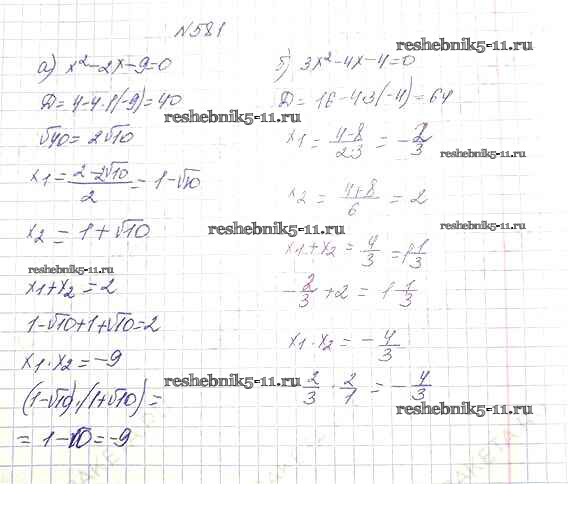 №581
а) x²-2x-9=0
Д=4-4·1·(-9)=40
√40=2√10
x1=(2-2√10)/2=1-√10
x2=1+√10
x1+x2=2
1-√10+1+√10=2
x1·x2=-9
(1-√10)·(1+√10)=
=1-10=-9
б) 3x²-4x-4=0
Д=16-4·3(-4)=64
x1=(4-8)/(2·3)=-2/3
x2=(4+8)/6=2
x1+x2=4/3=1 1/3
-2/3+2=1 1/3
x1·x2=-4/3
2/3·2/1=-4/3
reshebnik5-11.ru
reshebnik5-11.ru
reshebnik5-11.ru
reshebnik5-11.ru
reshebnik5-11.ru
reshebnik5-11.ru
reshebnik5-11.ru
reshebnik5-11.ru